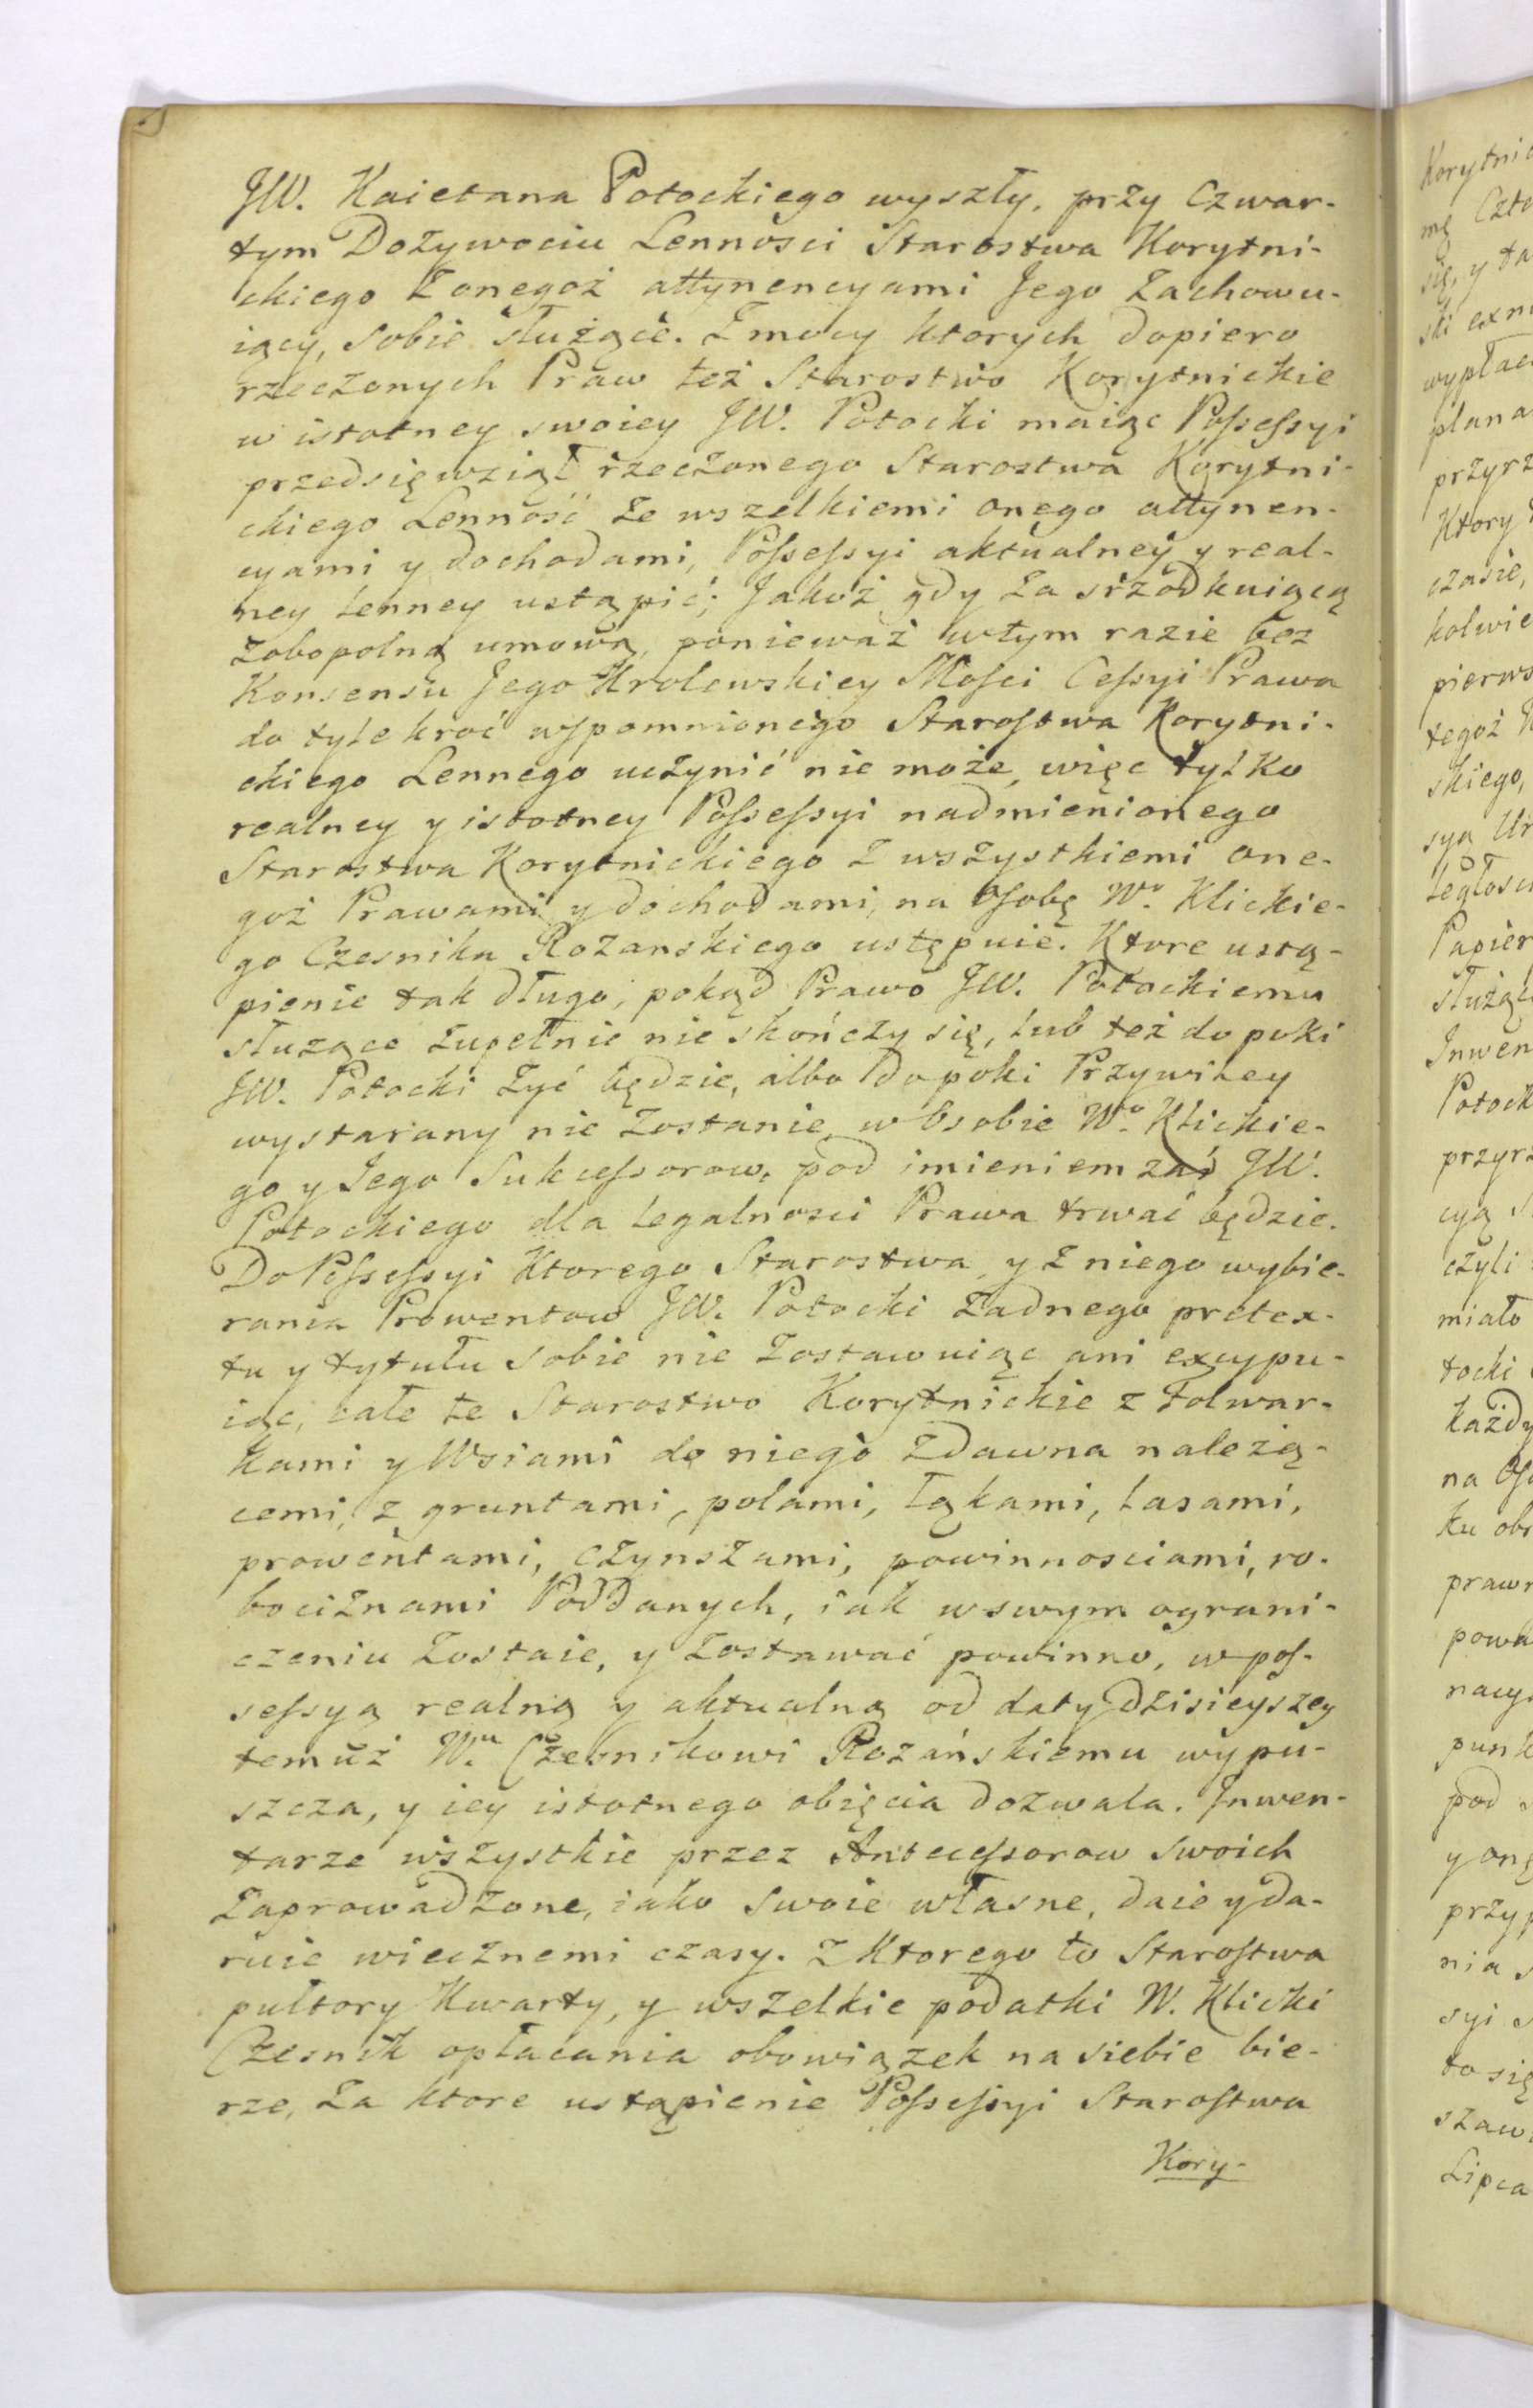 JW. Kaietana Potockiego wyszły, przy Czwar-
tym Dożywociu Lennosci Starostwa Korytni-
ckiego Z onegoż attynencyami Jego Zachowu-
iący, Sobie służące. Z mocy ktorych dopiero
rzeczonych Praw też Starostwo Korytnickie
w istotney swoiey JW. Potocki maiąc Possessyi
przedsięwziął rzeczonego Starostwa Korytni-
ckiego Lenność Ze wszelkiemi onego attynen-
cyami y dochodami, Possessyi aktualney y real-
ney lenney ustąpić; Jakoż gdy Za srzodkuiącą
Zobopolną umową, ponieważ w tym razie bez
Konsensu Jego Krolewskiey Mosci Cessyi Prawa
do tylekroć wspomnionego Starostwa Korytni-
ckiego Lennego uczynić nie może, więc tylko
realney y istotney Possessyi nadmienionego
Starostwa Korytnickiego Z wszystkiemi one-
goż Prawami y dochodami, na Osobę Wo. Klickie-
go Czesnika Rozanskiego ustępuie. Ktore ustą-
pienie tak długo, pokąd Prawo JW. Potockiemu
słuzące Zupełnie nie skończy się, lub też do poki
JW. Potocki Żyć będzie, albo do poki Przywiley
wystarany nie Zostanie w Osobie Wo. Klickie-
go y Jego Sukcessorow, pod imieniem zaś JW.
Potockiego dla legalnosci Prawa trwać będzie.
Do Possessyi Ktorego Starostwa, y Z niego wybie-
rania Prowentow JW. Potocki Żadnego pretex-
tu y tytułu Sobie nie Zostawuiąc ani excypu-
iąc, całe te Starostwo Korytnickie z Folwar-
kami y Wsiami do niego Zdawna należą-
cemi, z gruntami, polami, łąkami, lasami,
prowentami, czynszami, powinnosciami, ro-
bociznami Poddanych, iak w swym ograni-
czeniu Zostaie, y Zostawać powinno, w pos-
sessyą realną y aktualną od daty dzisieyszey
temuż Wu. Czesnikowi Rozańskiemu wypu-
szcza, y iey istotnego obięcia dozwala. Inwen-
tarze wszystkie przez Antecessorow Swoich
Zaprowadzone, iako Swoie własne, daie y da-
ruie wiecznemi czasy. Z Ktorego to Starostwa
pułtory Kwarty, y wszelkie podatki W. Klicki
Czesnik opłacania obowiązek na siebie bie-
rze, Za ktore ustąpienie Possessyi Starostwa
Kory-